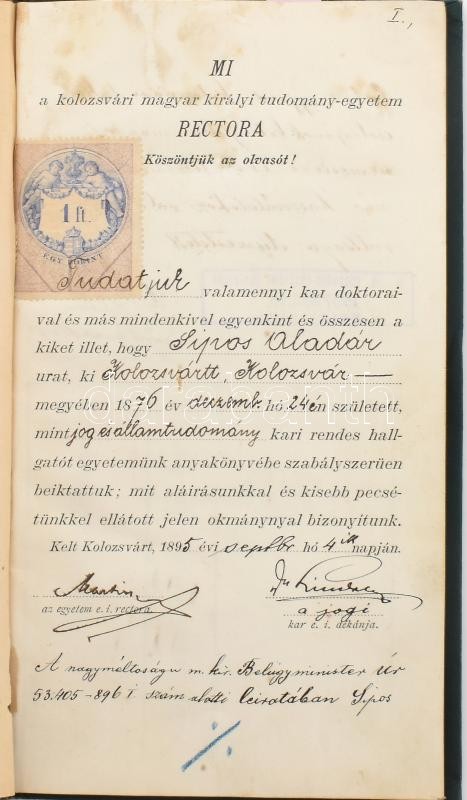 I.,
MI
a kolozsvári magyar királyi tudomány-egyetem
RECTORA
Köszöntjük az olvasót!
1 ft.
EGY FORINT
Tudatjuk valamennyi kar doktorai-
val és más mindenkivel egyenkint és összesen a
kiket illet, hogy Sipos Aladár
urat, ki Kolozsvártt, Kolozsvár —
megyében 1876 év deczemb. hó 24én született,
mint jog és államtudomány kari rendes hall-
gatót egyetemünk anyakönyvébe szabályszerüen
beiktattuk; mit aláirásunkkal és kisebb pecsé-
tünkkel ellátott jelen okmánynyal bizonyitunk.
Kelt Kolozsvárt, 1895 évi septbr. hó 4ik napján.
az egyetem e. i. rectora.
a jogi
kar e. i. dékánja.
A nagyméltóságu m. kir. Belügyminister úr
53.405-896 I. szám alatti leiratában Sipos